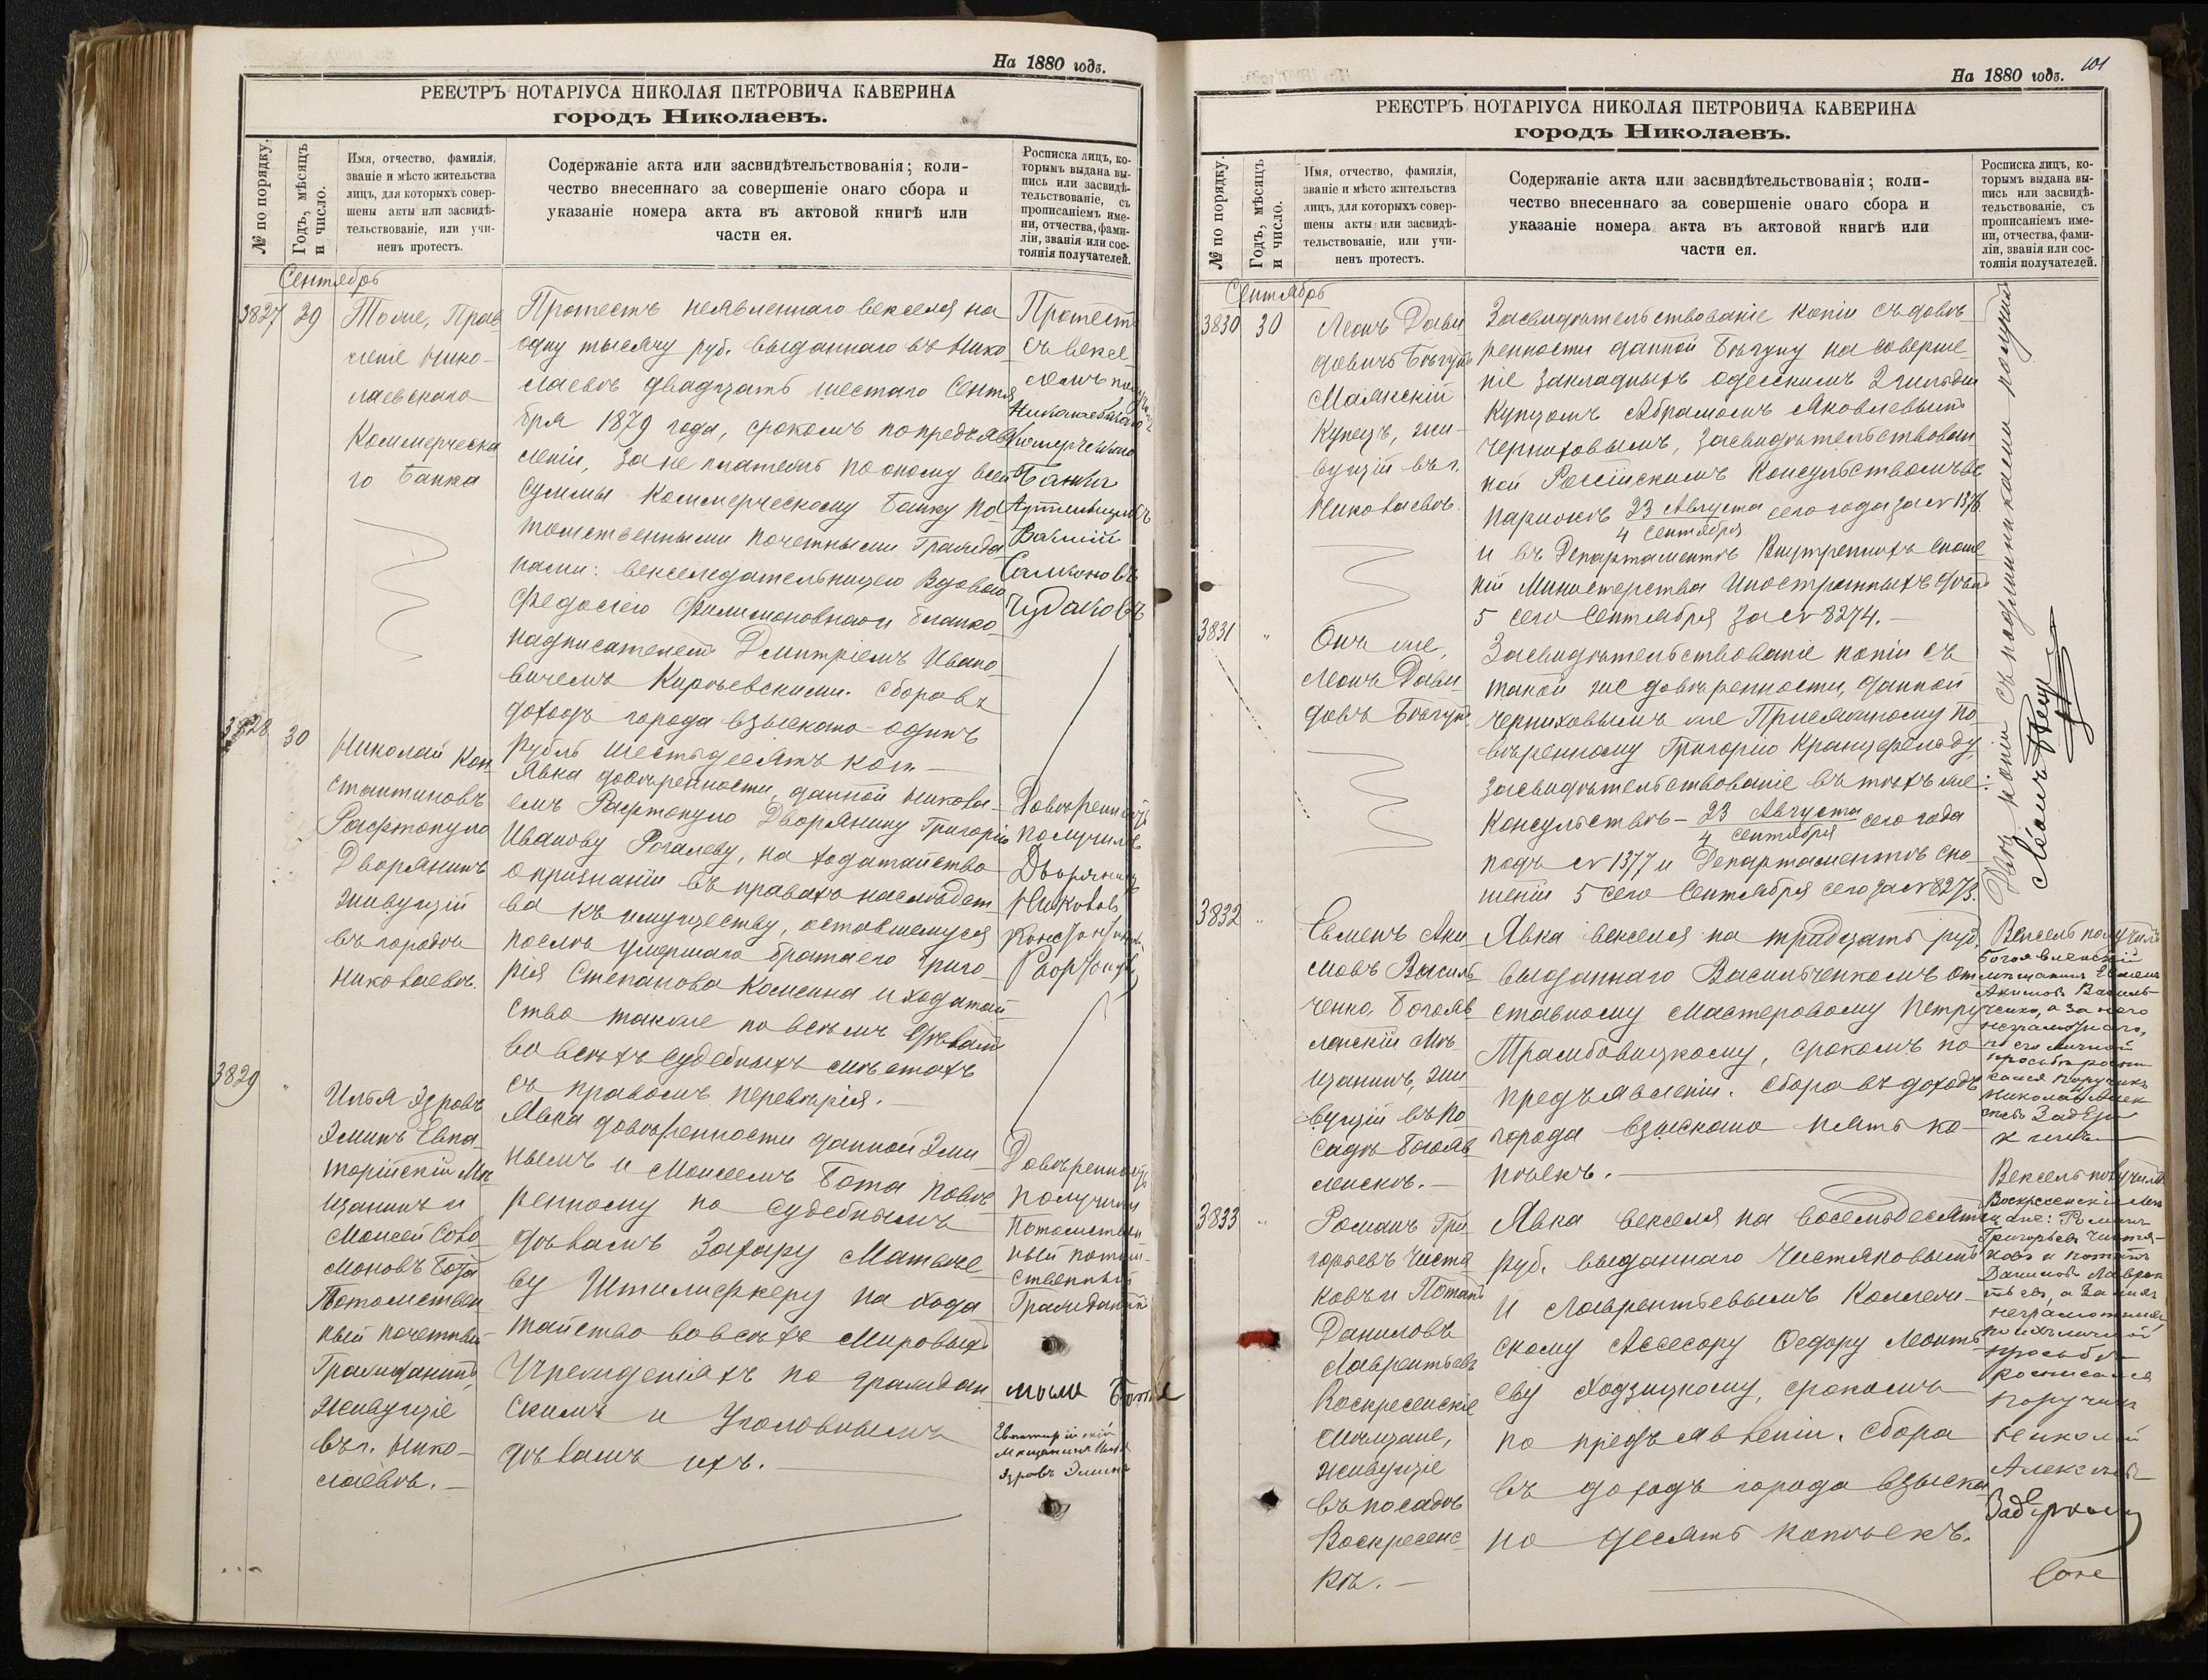 На 1880 годъ.
РЕЕСТРЪ НОТАРІУСА НИКОЛАЯ ПЕТРОВИЧА КАВЕРИНА
городъ Николаевъ.
№ по порядку.
Годъ, мѣсяцъ
и число.
Имя, отчество, фамилія,
званіе и мѣсто жительства
лицъ, для которыхъ совер-
шены акты или засвидѣ-
тельствованіе, или учи-
ненъ протестъ.
Содержаніе акта или засвидѣтельствованія; коли-
чество внесеннаго за совершеніе онаго сбора и
указаніе номера акта въ актовой книгѣ или
части ея.
Росписка лицъ, ко-
торымъ выдана вы-
пись или засвидѣ-
тельствованіе, съ
прописаніемъ име-
ни, отчества, фами-
ліи, званія или сос-
тоянія получателей.
Сентябрь
3827
29
Тоже, Прав
леніе Нико-
лаевскаго
Коммерческа
го Банка
Протестъ неявленнаго векселя на
одну тысячу руб. выданнаго въ Нико
лаевѣ двадцать шестаго Сентя
бря 1879 года, срокомъ по предъяв
леніи, за не платежъ по оному всей
суммы Коммерческому Банку По
томственными почетными Гражда
нами: векселедательницею Вдовою
Федосіею Филимоновною и бланко-
надписателемъ Дмитріемъ Ивано-
вичемъ Киріевскими. Сбора въ
доходъ города взыскано один
рубль шестьдесятъ коп. —
Протестъ
съ вексе
лемъ
Николаевскаго
Коммерческаго
Банка
Артельщикъ
Василій
Салионовъ
Чудаковъ
3828
30
Николай Кон
стантиновъ
Рафтопуло
Дворянинъ
живущій
въ городѣ
Николаевѣ.
Явка довѣренности, данной Никола-
емъ Рафтопуло Дворянину Григорію
Иванову Рогалеву, на ходатайство
о признаніи въ правахъ наслѣдст
ва къ имуществу, оставшемуся
послѣ умершаго брата его Григо-
рія Степанова Комнина и ходатай
ство также по всѣмъ дѣламъ
во всѣхъ судебныхъ мѣстахъ
съ правомъ перевѣрія. —
Довѣренность
получилъ
Дворянинъ
Николай
Рафтопуло
3829
"
Илья Эзровъ
Эминъ Евпа
торійскій Мѣ
щанинъ и
Моисей Соло
моновъ Бота
Потомствен
ный почетный
Гражданинъ,
живущіе
въ г. Нико-
лаевѣ. —
Явка довѣренности данной Эми-
нымъ и Моисеемъ Бота повѣ
ренному по судебнымъ
дѣламъ Захару Матвѣе
ву Штилиеркеру на хода
тайство во всѣхъ Мировыхъ
Учрежденіяхъ по граждан
скимъ и Уголовнымъ
дѣламъ ихъ. —
Довѣренность
получили
Потомствен
ный
Гражданинъ
Бота
Евпаторійскій
Мѣщанинъ Илья
Эзровъ Эминъ
На 1880 годъ.
101
РЕЕСТРЪ НОТАРІУСА НИКОЛАЯ ПЕТРОВИЧА КАВЕРИНА
городъ Николаевъ.
№ по порядку.
Годъ, мѣсяцъ
и число.
Имя, отчество, фамилія,
званіе и мѣсто жительства
лицъ, для которыхъ совер-
шены акты или засвидѣ-
тельствованіе, или учи-
ненъ протестъ.
Содержаніе акта или засвидѣтельствованія; коли-
чество внесеннаго за совершеніе онаго сбора и
указаніе номера акта въ актовой книгѣ или
части ея.
Росписка лицъ, ко-
торымъ выдана вы-
пись или засвидѣ-
тельствованіе, съ
прописаніемъ име-
ни, отчества, фами-
ліи, званія или сос-
тоянія получателей.
Сентябрь
3830
30
Леонъ Дави
довичъ Бѣгунъ
Маякскій
Купецъ, жи-
вущій въ г.
Николаевѣ.
Засвидѣтельствованіе копіи съ довѣ
ренности данной Бѣгуну на соверше-
ніе закладныхъ одесскимъ 2 гильдіи
Купцомъ Абрамомъ Яковлевымъ
Черниховымъ, засвидѣтельствован
ной Россійскимъ Консульствомъ въ
Парижѣ 23 Августа / 4 Сентября сего года за № 1376
и въ Департаментѣ Внутреннихъ сноше
ній Министерства Иностранныхъ дѣлъ
5 сего Сентября за № 8274. —
Двѣ копіи съ подлинниками получилъ:
Леонъ Бѣгунъ
3831
"
Онъ же,
Леонъ Дави-
довъ Бѣгунъ
Засвидѣтельствованіе копіи съ
такой же довѣренности, данной
Черниховымъ же Присяжному по
вѣренному Григорію Кранцфельду,
засвидѣтельствованіе въ томъ же
Консульствѣ — 23 Августа / 4 Сентября сего года
подъ № 1377 и Департаментѣ сно
шеній 5 сего Сентября сего за № 8273.
3832
"
Евменъ Аки
мовъ Василь
ченко, Богояв
ленскій Мѣ-
щанинъ, жи
вущій въ по
садѣ Богояв
ленскѣ. —
Явка векселя на тридцать руб.
выданнаго Васильченкомъ От
ставному Мастеровому Петру
Трамбовицкому, срокомъ по
предъявленіи. Сбора въ доходъ
города взыскано пять ко-
пѣекъ. —
Вексель получилъ
Богоявленскій
мѣщанинъ Евменъ
Акимовъ Василь-
ченко, а за него
неграмотнаго,
по его личной
просьбѣ роспи
сался Поручикъ
Николай Алек
3833
"
Романъ Гри
горьевъ Чистя
ковъ и Потапъ
Даниловъ
Лаврентьевъ
Воскресенскіе
Мѣщане,
живущіе
въ посадѣ
Воскресенс-
кѣ. —
Явка векселя на восемьдесятъ
руб. выданнаго Чистяковымъ
и Лаврентьевымъ Коллежи-
скому Ассесору Ѳедору Леонтье
еву Ходзицкому, срокомъ
по предъявленіи. Сбора
въ доходъ города взыска
но десять копѣекъ.
Вексель получили
Воскресенскіе Мѣ
щане: Романъ
Григорьевъ Чистя-
ковъ и Потапъ
Даниловъ Лаврен
тьевъ, а за нихъ
неграмотныхъ,
по ихъ личной
просьбѣ
росписался
поручикъ
Николай